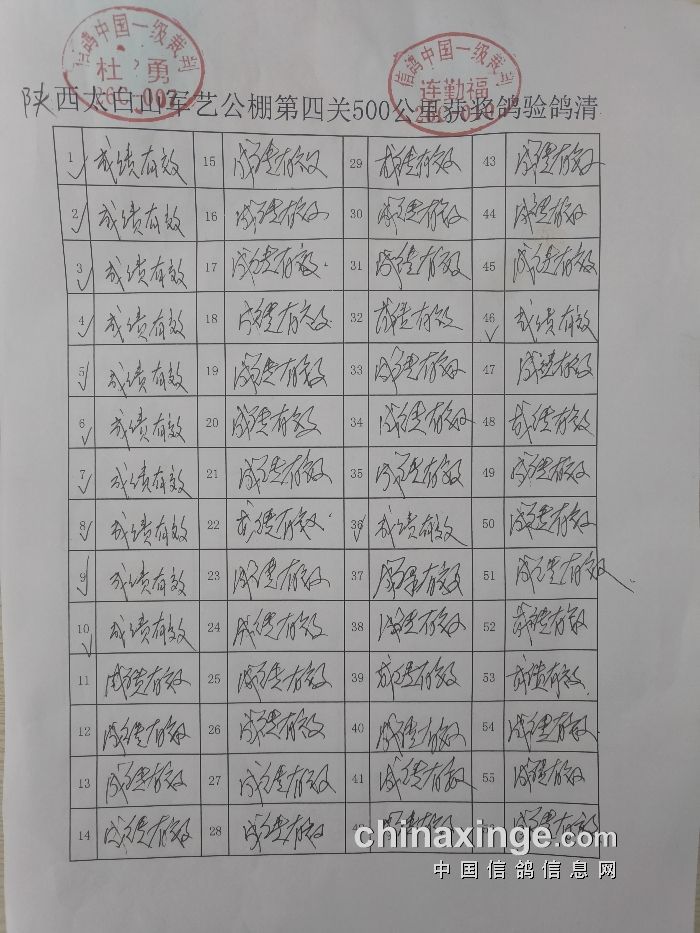 信鸽中国一级裁判
杜勇
信鸽中国一级裁判
连勤福
陕西太白山军艺公棚第四关500公里获奖鸽验鸽清
1 成绩有效 15 成绩有效 29 成绩有效 43 成绩有效
2 成绩有效 16 成绩有效 30 成绩有效 44 成绩有效
3 成绩有效 17 成绩有效 31 成绩有效 45 成绩有效
4 成绩有效 18 成绩有效 32 成绩有效 46 成绩有效
5 成绩有效 19 成绩有效 33 成绩有效 47 成绩有效
6 成绩有效 20 成绩有效 34 成绩有效 48 成绩有效
7 成绩有效 21 成绩有效 35 成绩有效 49 成绩有效
8 成绩有效 22 成绩有效 36 成绩有效 50 成绩有效
9 成绩有效 23 成绩有效 37 成绩有效 51 成绩有效
10 成绩有效 24 成绩有效 38 成绩有效 52 成绩有效
11 成绩有效 25 成绩有效 39 成绩有效 53 成绩有效
12 成绩有效 26 成绩有效 40 成绩有效 54 成绩有效
13 成绩有效 27 成绩有效 41 成绩有效 55 成绩有效
14 成绩有效 28 成绩有效 成绩有效 成绩有效
chinaxinge.com
中国信鸽信息网